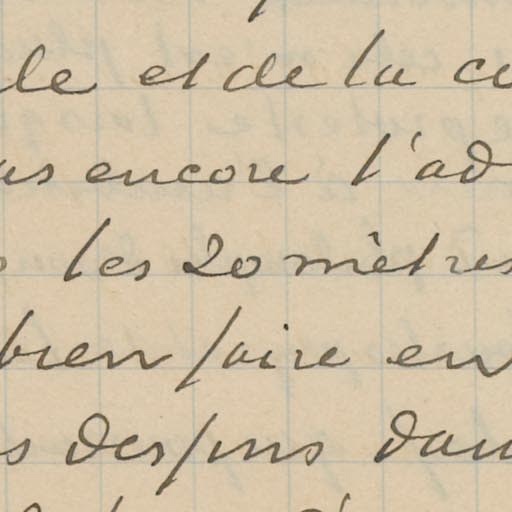 le et de la co
as encore l'ad
les 20 mètres
bien faire en
s des pins dan